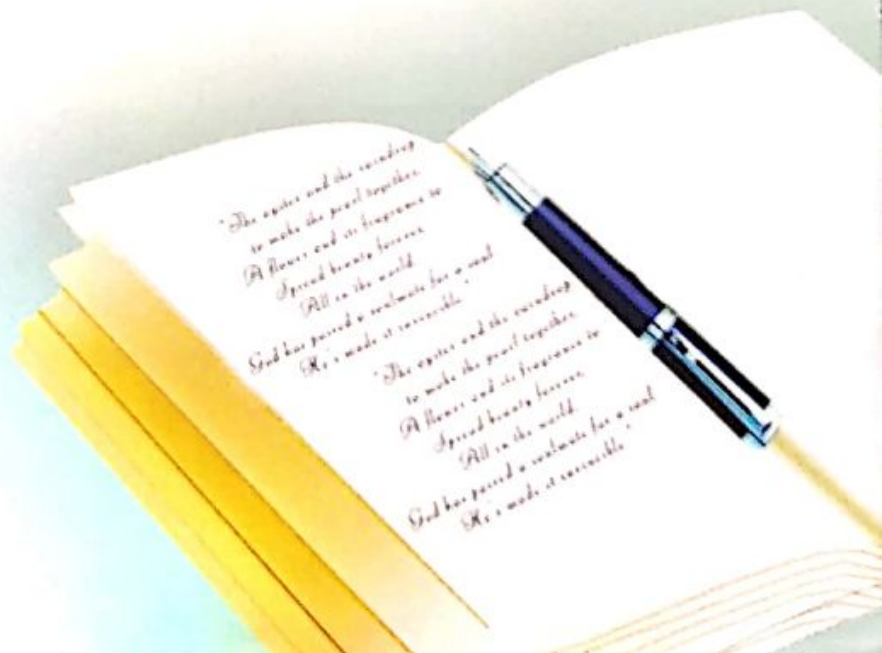 "The oyster and the raindrop
to make the pearl together.
A flower and its fragrance to
Spread beauty forever
All in the world.
God has paired a soulmate for a soul
He's made it invincible"
"The oyster and the raindrop
to make the pearl together.
A flower and its fragrance to
Spread beauty forever
All in the world.
God has paired a soulmate for a soul
He's made it invincible"